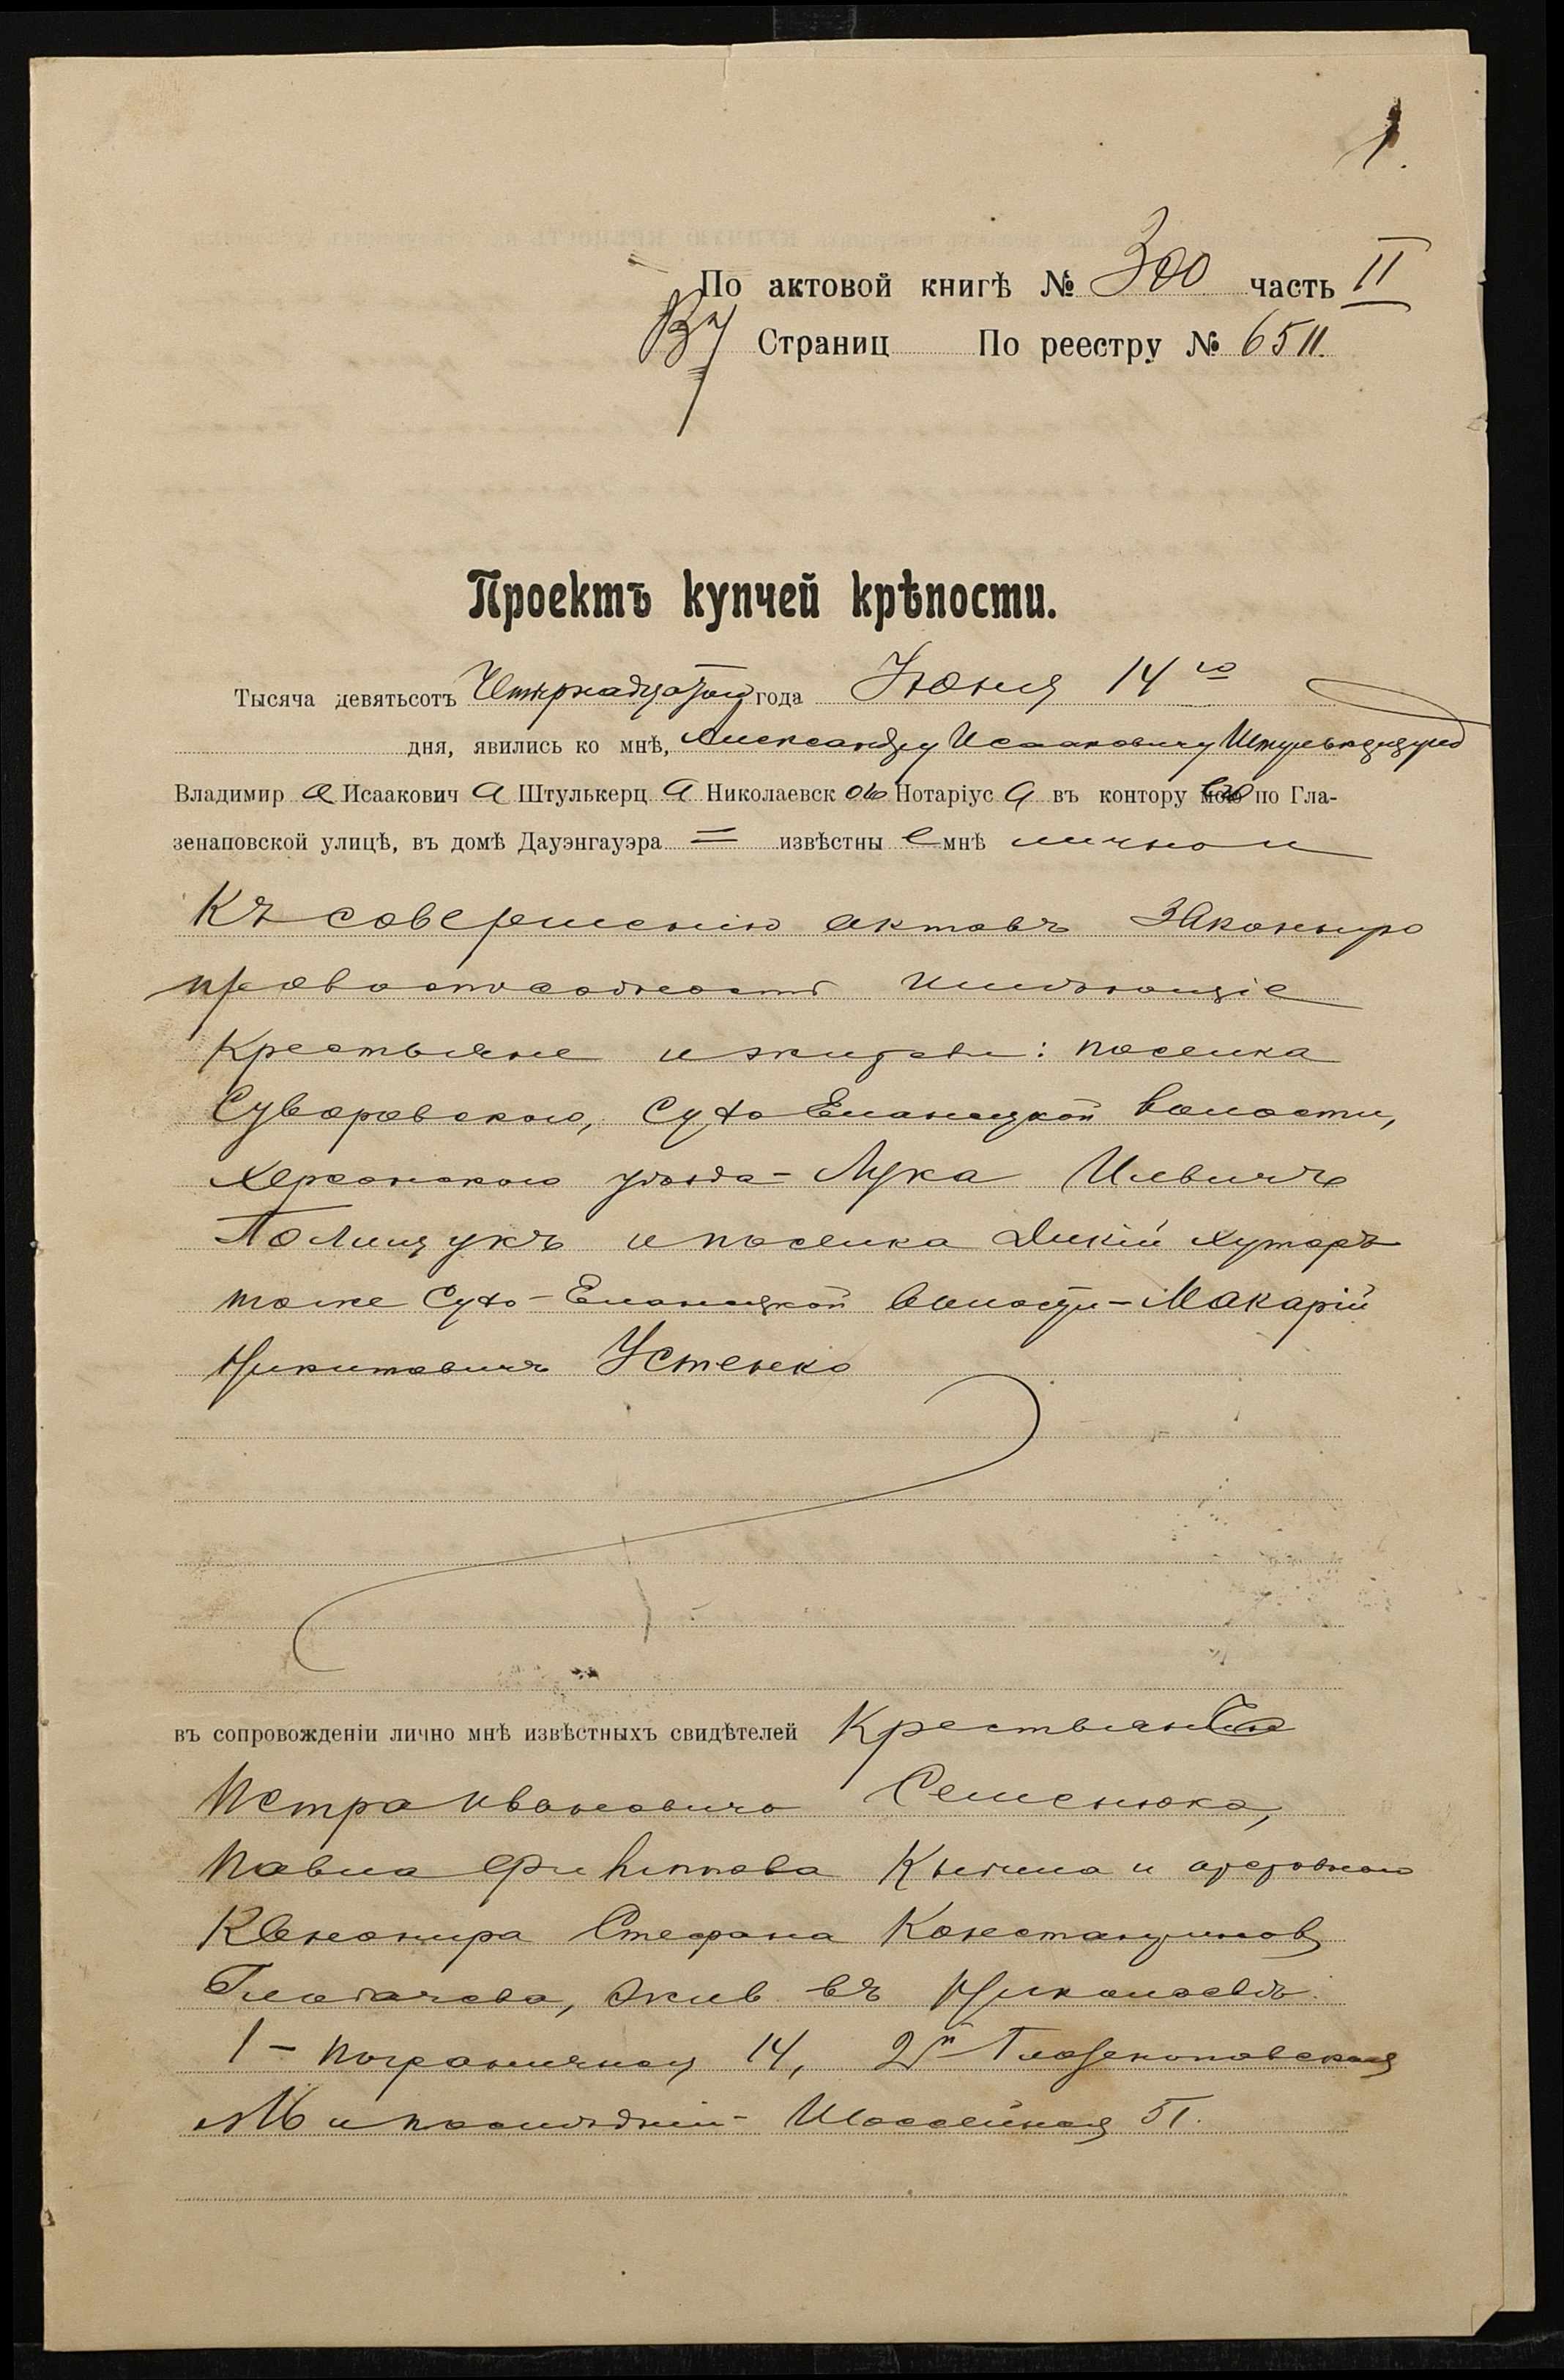 1.
По актовой книгѣ № 300 часть II
Страниц По реестру № 6511.
Проектъ купчей крѣпости.
Тысяча девятьсотъ Четырнадцатого года Июня 14 го
дня, явились ко мнѣ, Александру Исааковичу
Владимир а Исаакович а Штулькерц а Николаевск ого Нотаріус а въ контору его по Гла-
зенаповской улицѣ, въ домѣ Дауэнгауэра = извѣстны е мнѣ лично и
Къ совершенію актовъ законную
правоспособность имѣющіе
Крестьяне и жители: поселка
Суворовскаго, Сухо Еланецкой волости,
Херсонскаго уѣзда - Лука Ильичъ
Полищукъ и поселка Дикій хуторъ
тоже Сухо-Еланецкой волости - Макарій
Никитовичъ Устенко
въ сопровожденіи лично мнѣ извѣстныхъ свидѣтелей Крестьян
Петра Ивановича Семенюка,
Павла Филиппова и
Канонира Стефана Константинов
жив. въ Николаевѣ.
1 - Пограничная 14, 2й Глазенаповская
и послѣдній - Шоссейная 51.